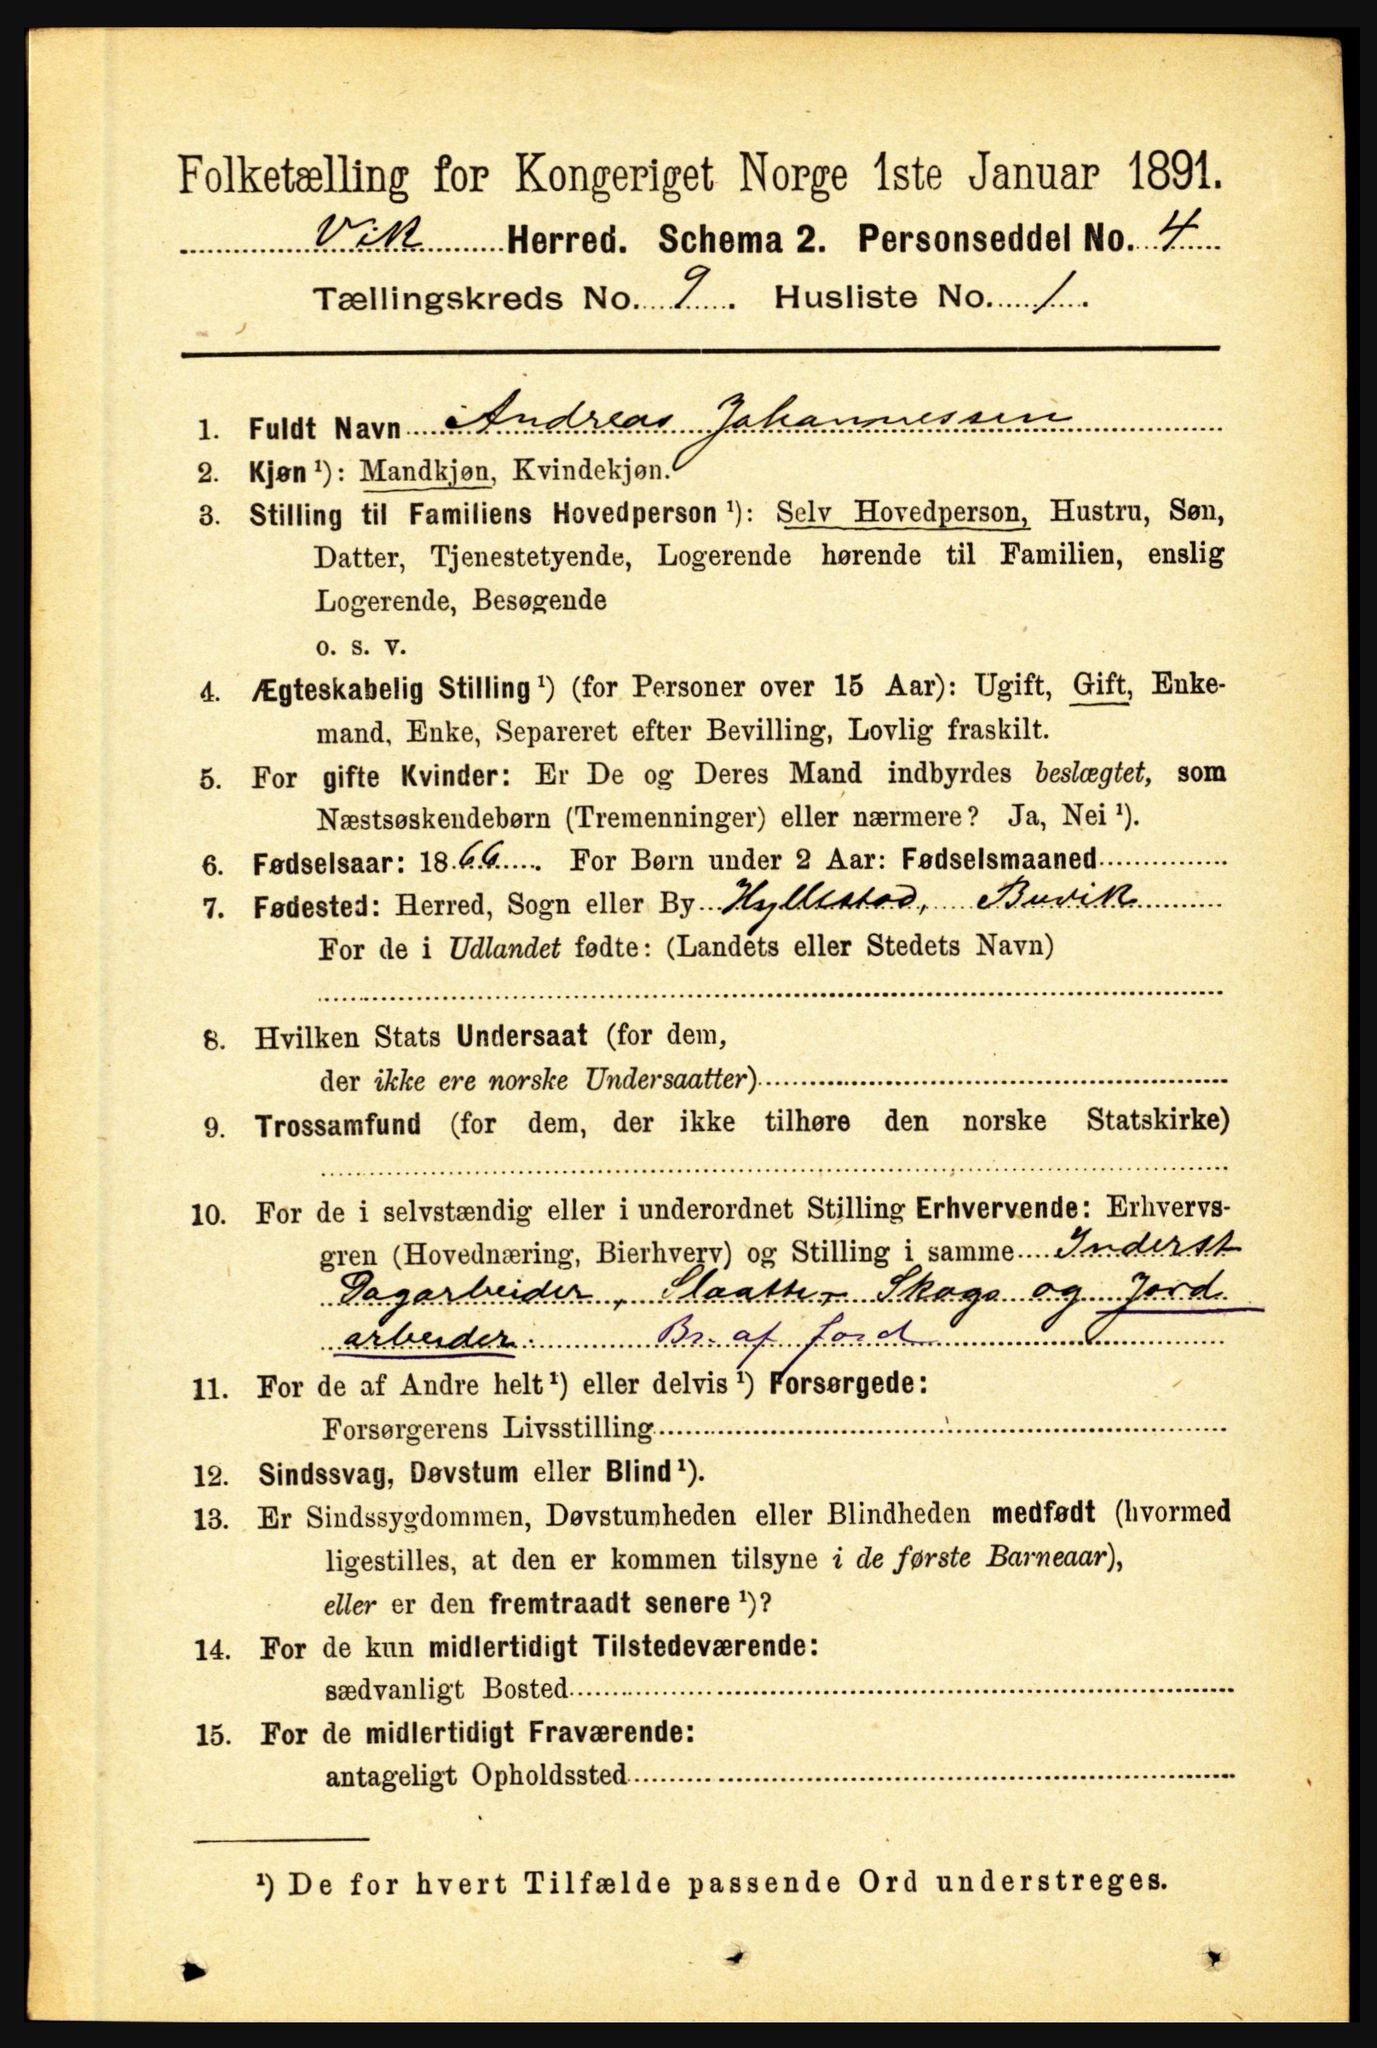 Folketælling for Kongeriget Norge 1ste Januar 1891.
Vik Herred. Schema 2. Personseddel No. 4
Tællingskreds No. 9. Husliste No. 1.
1. Fuldt Navn Andreas Johannessen
2. Kjøn ¹): Mandkjøn, Kvindekjøn.
3. Stilling til Familiens Hovedperson ¹): Selv Hovedperson, Hustru, Søn,
Datter, Tjenestetyende, Logerende hørende til Familien, enslig
Logerende, Besøgende
o. s. v.
4. Ægteskabelig Stilling ¹) (for Personer over 15 Aar): Ugift, Gift, Enke-
mand, Enke, Separeret efter Bevilling, Lovlig fraskilt.
5. For gifte Kvinder: Er De og Deres Mand indbyrdes beslægtet, som
Næstsøskendebørn (Tremenninger) eller nærmere? Ja, Nei ¹).
6. Fødselsaar: 1866. For Børn under 2 Aar: Fødselsmaaned
7. Fødested: Herred, Sogn eller By Hyllestad, Buvik
For de i Udlandet fødte: (Landets eller Stedets Navn)
8. Hvilken Stats Undersaat (for dem,
der ikke ere norske Undersaatter)
9. Trossamfund (for dem, der ikke tilhøre den norske Statskirke)
10. For de i selvstændig eller i underordnet Stilling Erhvervende: Erhvervs-
gren (Hovednæring, Bierhverv) og Stilling i samme Inderst
Dagarbeider, Slaatte, Skogs og Jord
arbeider. Br. af Jord
11. For de af Andre helt ¹) eller delvis ¹) Forsørgede:
Forsørgerens Livsstilling
12. Sindssvag, Døvstum eller Blind ¹).
13. Er Sindssygdommen, Døvstumheden eller Blindheden medfødt (hvormed
ligestilles, at den er kommen tilsyne i de første Barneaar),
eller er den fremtraadt senere ¹)?
14. For de kun midlertidigt Tilstedeværende:
sædvanligt Bosted
15. For de midlertidigt Fraværende:
antageligt Opholdssted
¹) De for hvert Tilfælde passende Ord understreges.